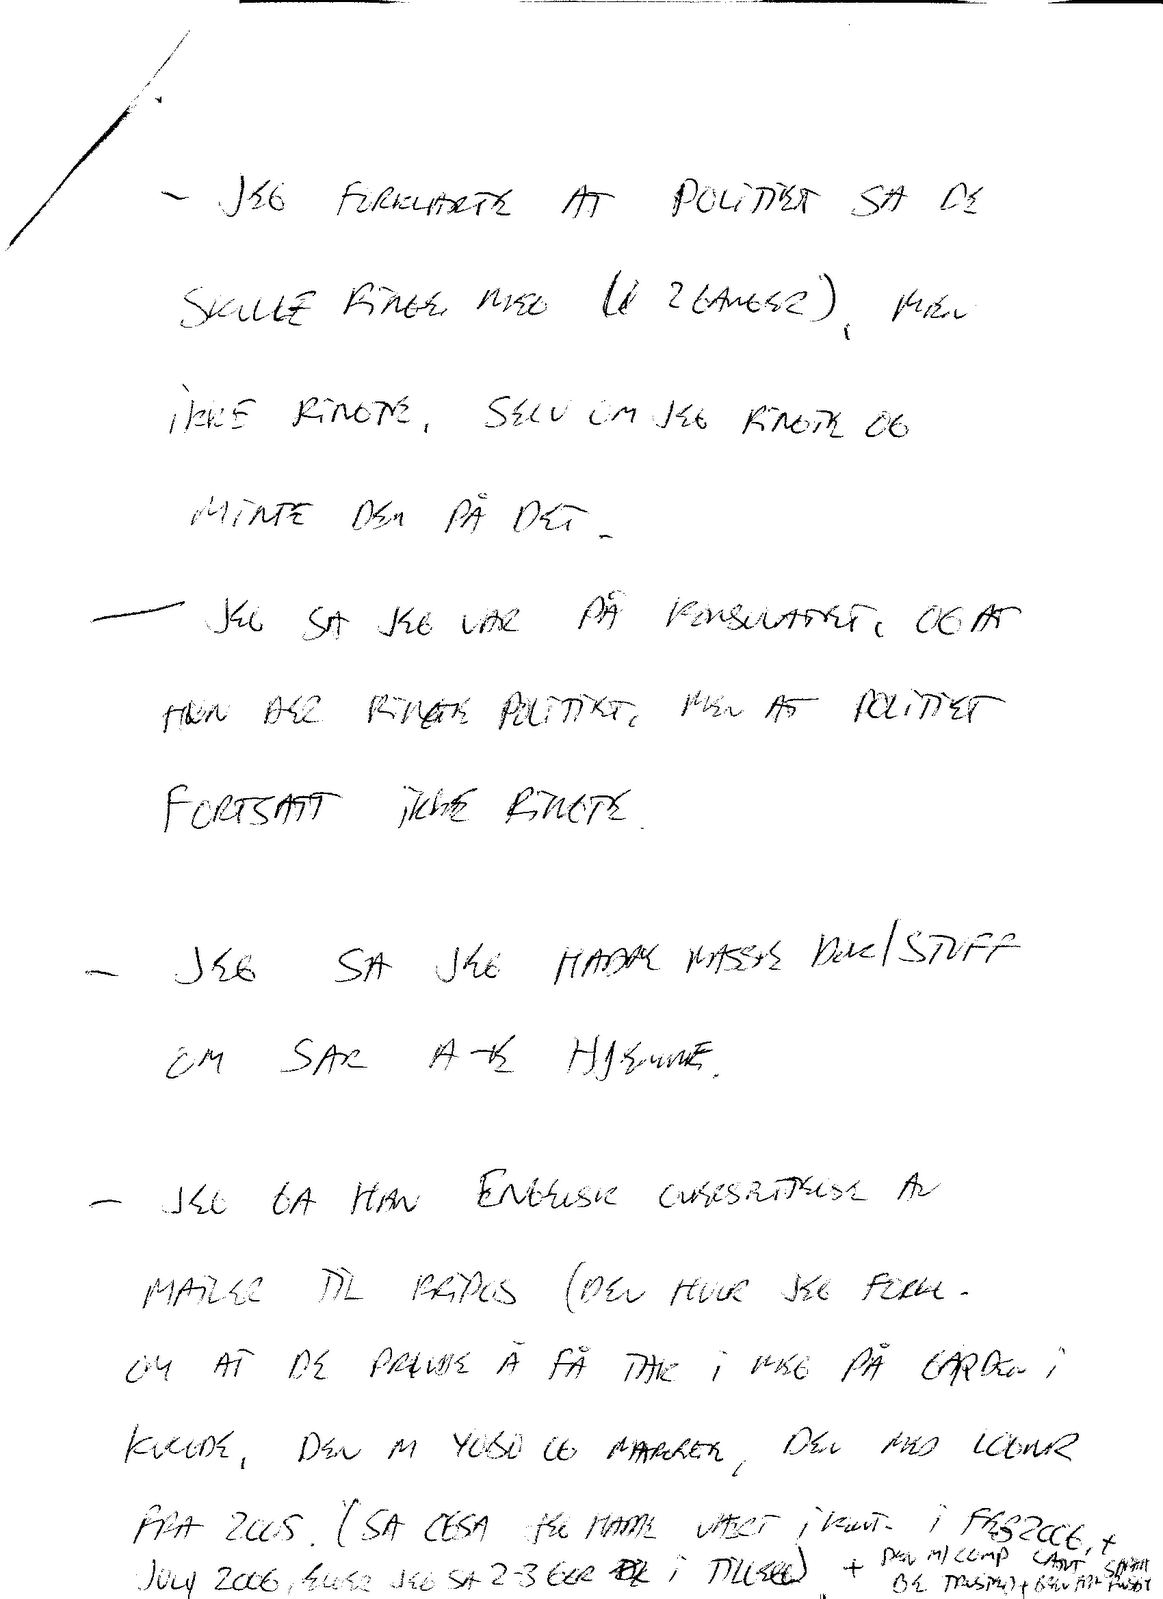 - JEG FORKLARTE AT POLITIET SA DE
SKULLE RINGE MEG ( 2 GANGER), MEN
IKKE RINGTE, SELV OM JEG RINGTE OG
MINTE DEM PÅ DET.
- JEG SA JEG VAR PÅ KONSULATET, OG AT
HAN DER RINGTE POLITIET, MEN AT POLITIET
FORTSATT IKKE RINGTE.
- JEG SA JEG HADDE MASSE DOK/STUFF
OM SAK HJEMME.
- JEG GA HAN ENGELSK OVERSETTELSE AV
MAILER TIL KRIPOS (DEN HVOR JEG FORKL.
OM AT DE PRØVDE Å FÅ TAK I MEG PÅ GÅRDEN I
DEN M OG DEN MED
FRA 2005. (SA OGSÅ JEG HADDE VÆRT I KONT. I FEB 2006, +
JULY 2006, ELLER JEG SA 2-3 I TILLEGG) + DEN M/ COMP CANT
BE TRUSTED +